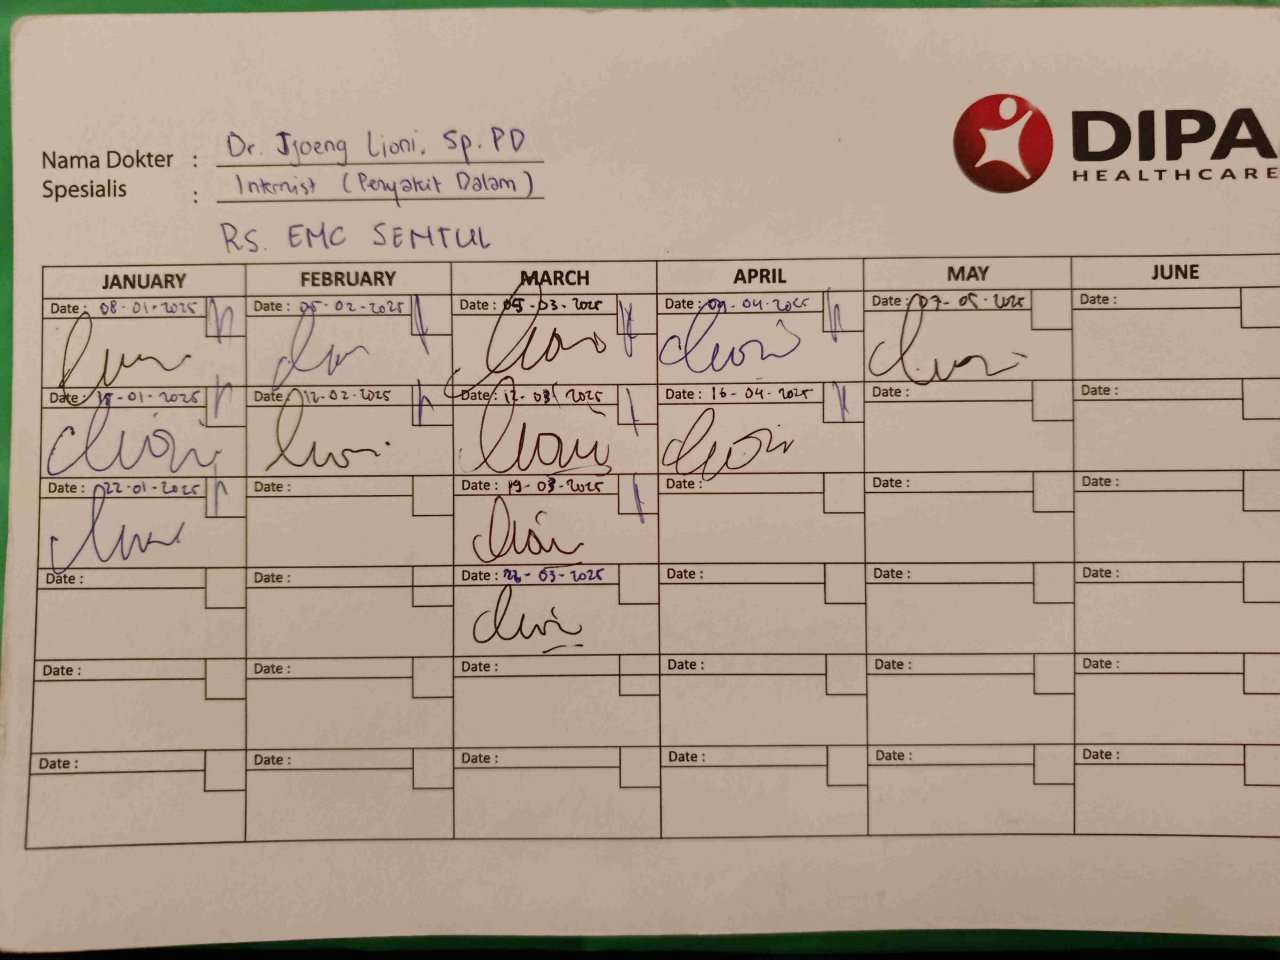 DIPA
HEALTHCARE
Nama Dokter : Dr. Jjoeng Lioni, Sp.PD
Spesialis : Internist (Penyakit Dalam)
RS. EMC SENTUL
JANUARY FEBRUARY MARCH APRIL MAY JUNE
Date : 08-01-2025 Date : 05-02-2025 Date : 05-03-2025 Date : 09-04-2025 Date : 07-05-2025 Date :
Date : 15-01-2025 Date : 12-02-2025 Date : 12-03-2025 Date : 16-04-2025 Date : Date :
Date : 22-01-2025 Date : Date : 19-03-2025 Date : Date : Date :
Date : Date : Date : 26-03-2025 Date : Date : Date :
Date : Date : Date : Date : Date : Date :
Date : Date : Date : Date : Date : Date :